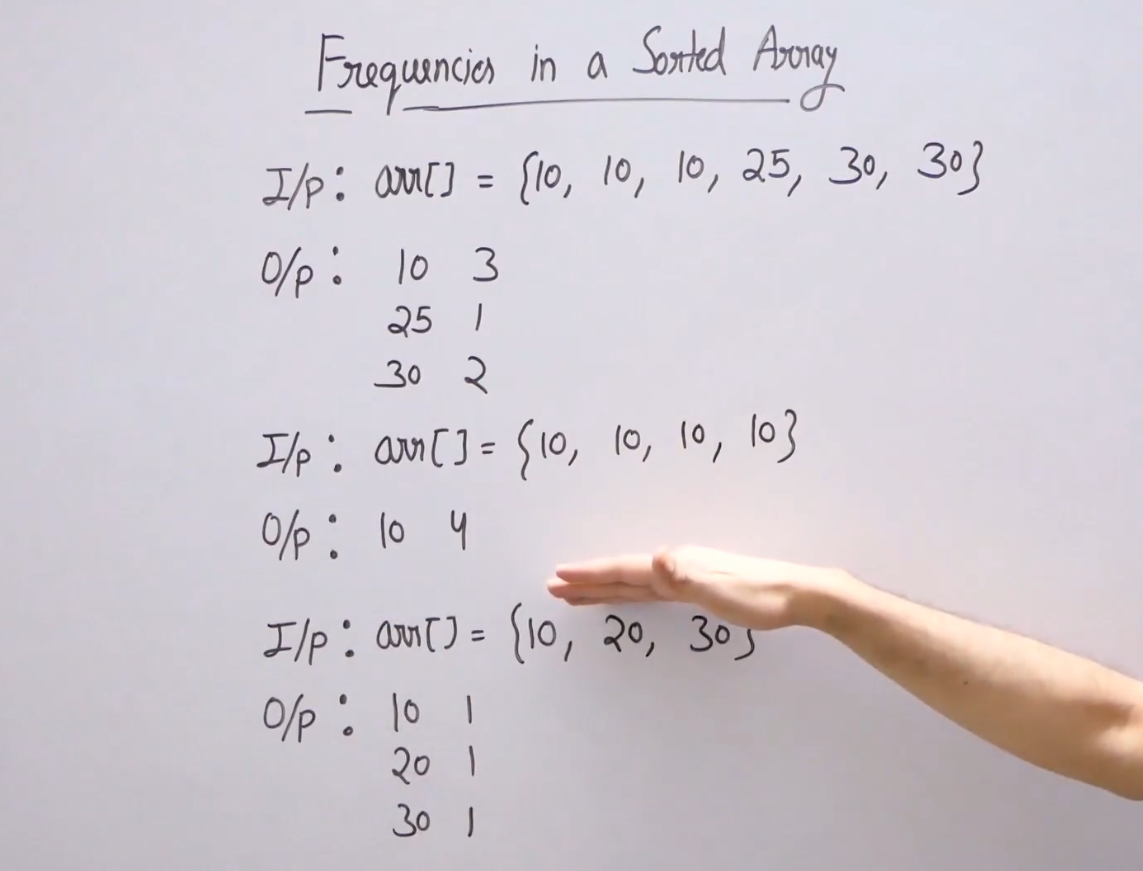 Frequencies in a Sorted Array
I/p: arr[] = {10, 10, 10, 25, 30, 30}
O/p: 10 3
25 1
30 2
I/p: arr[] = {10, 10, 10, 10}
O/p: 10 4
I/p: arr[] = {10, 20, 30}
O/p: 10 1
20 1
30 1